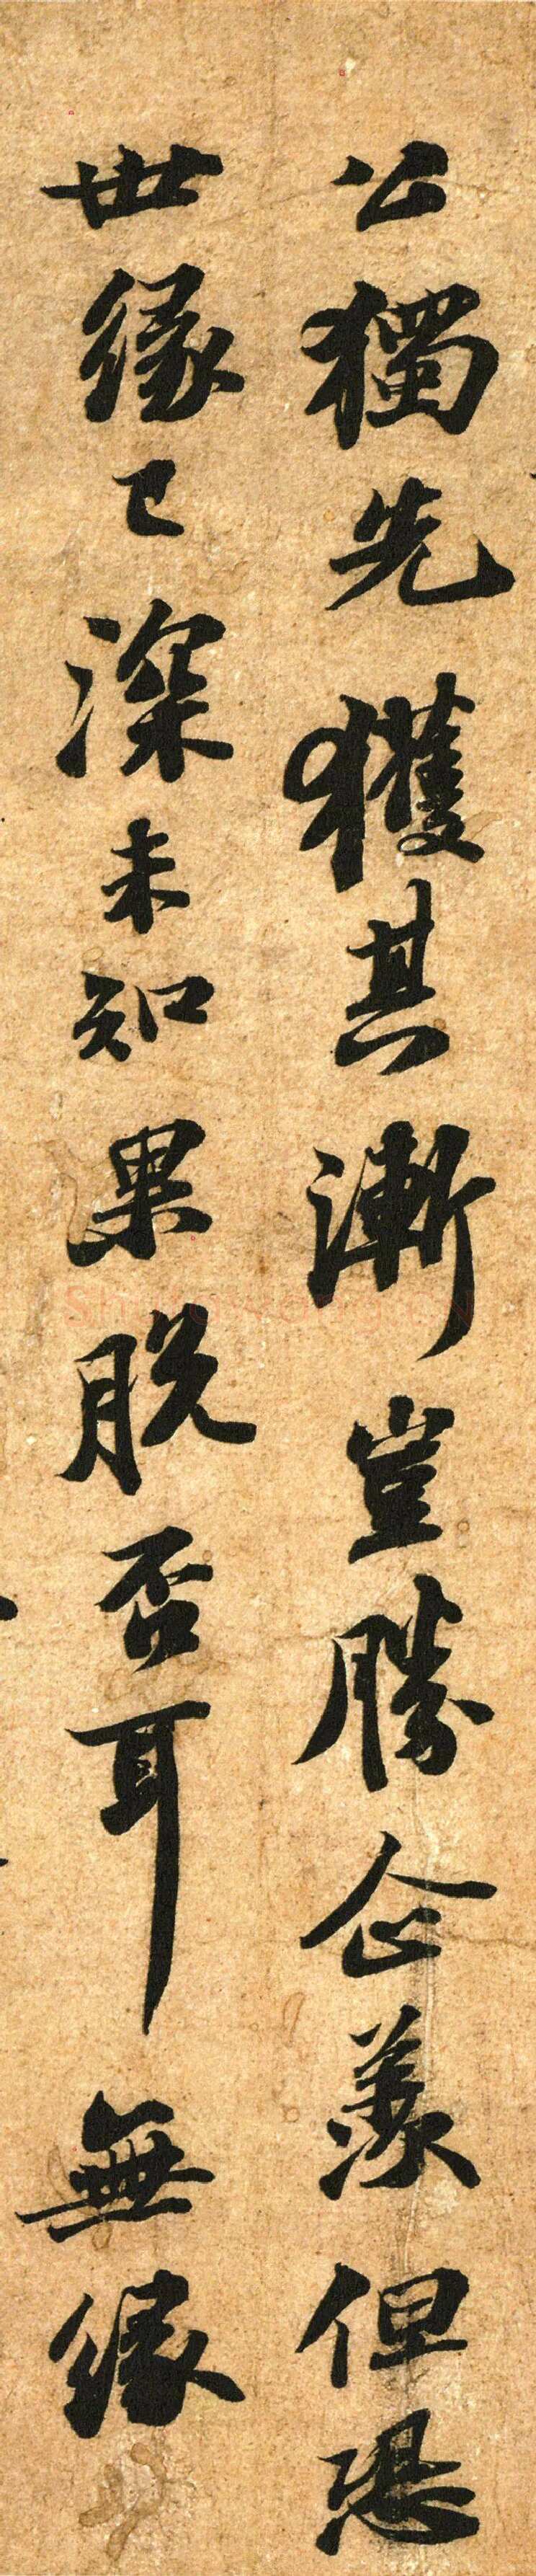 公獨先獲其漸豈勝企羨但恐
世緣已深未知果脫否耳無緣